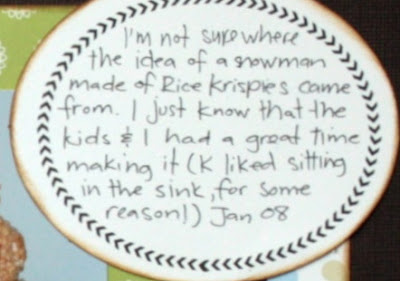 I'm not sure where
the idea of a snowman
made of Rice Krispies came
from. I just know that the
kids & I had a great time
making it (K liked sitting
in the sink, for some
reason!) Jan 08